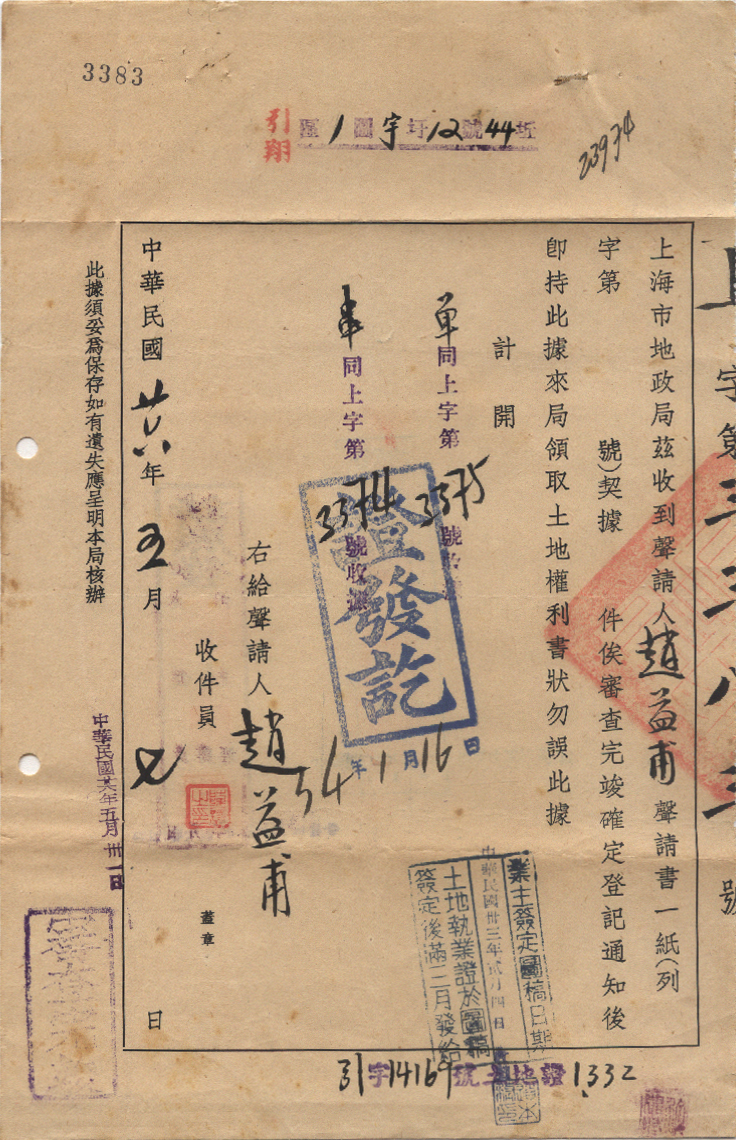 3383
引翔區1圖宇圩12號44坵
23934
上字第三三八三號
上海市地政局茲收到聲請人趙益甫聲請書一紙(列
字第　號)契據　件俟審查完竣確定登記通知後
卽持此據來局領取土地權利書狀勿誤此據
計開
單同上字第3375號
單同上字第3374號收據
證發訖
34年1月16日
右給聲請人趙益甫
收件員
蓋章
中華民國廿六年五月　日
此據須妥為保存如有遺失應呈明本局核辦
中華民國廿六年五月卅一日
業主簽定圖稿日期
中華民國卅三年貳月四日
土地執業證於圖稿
簽定後滿二月發給
引字14169號土地證1332